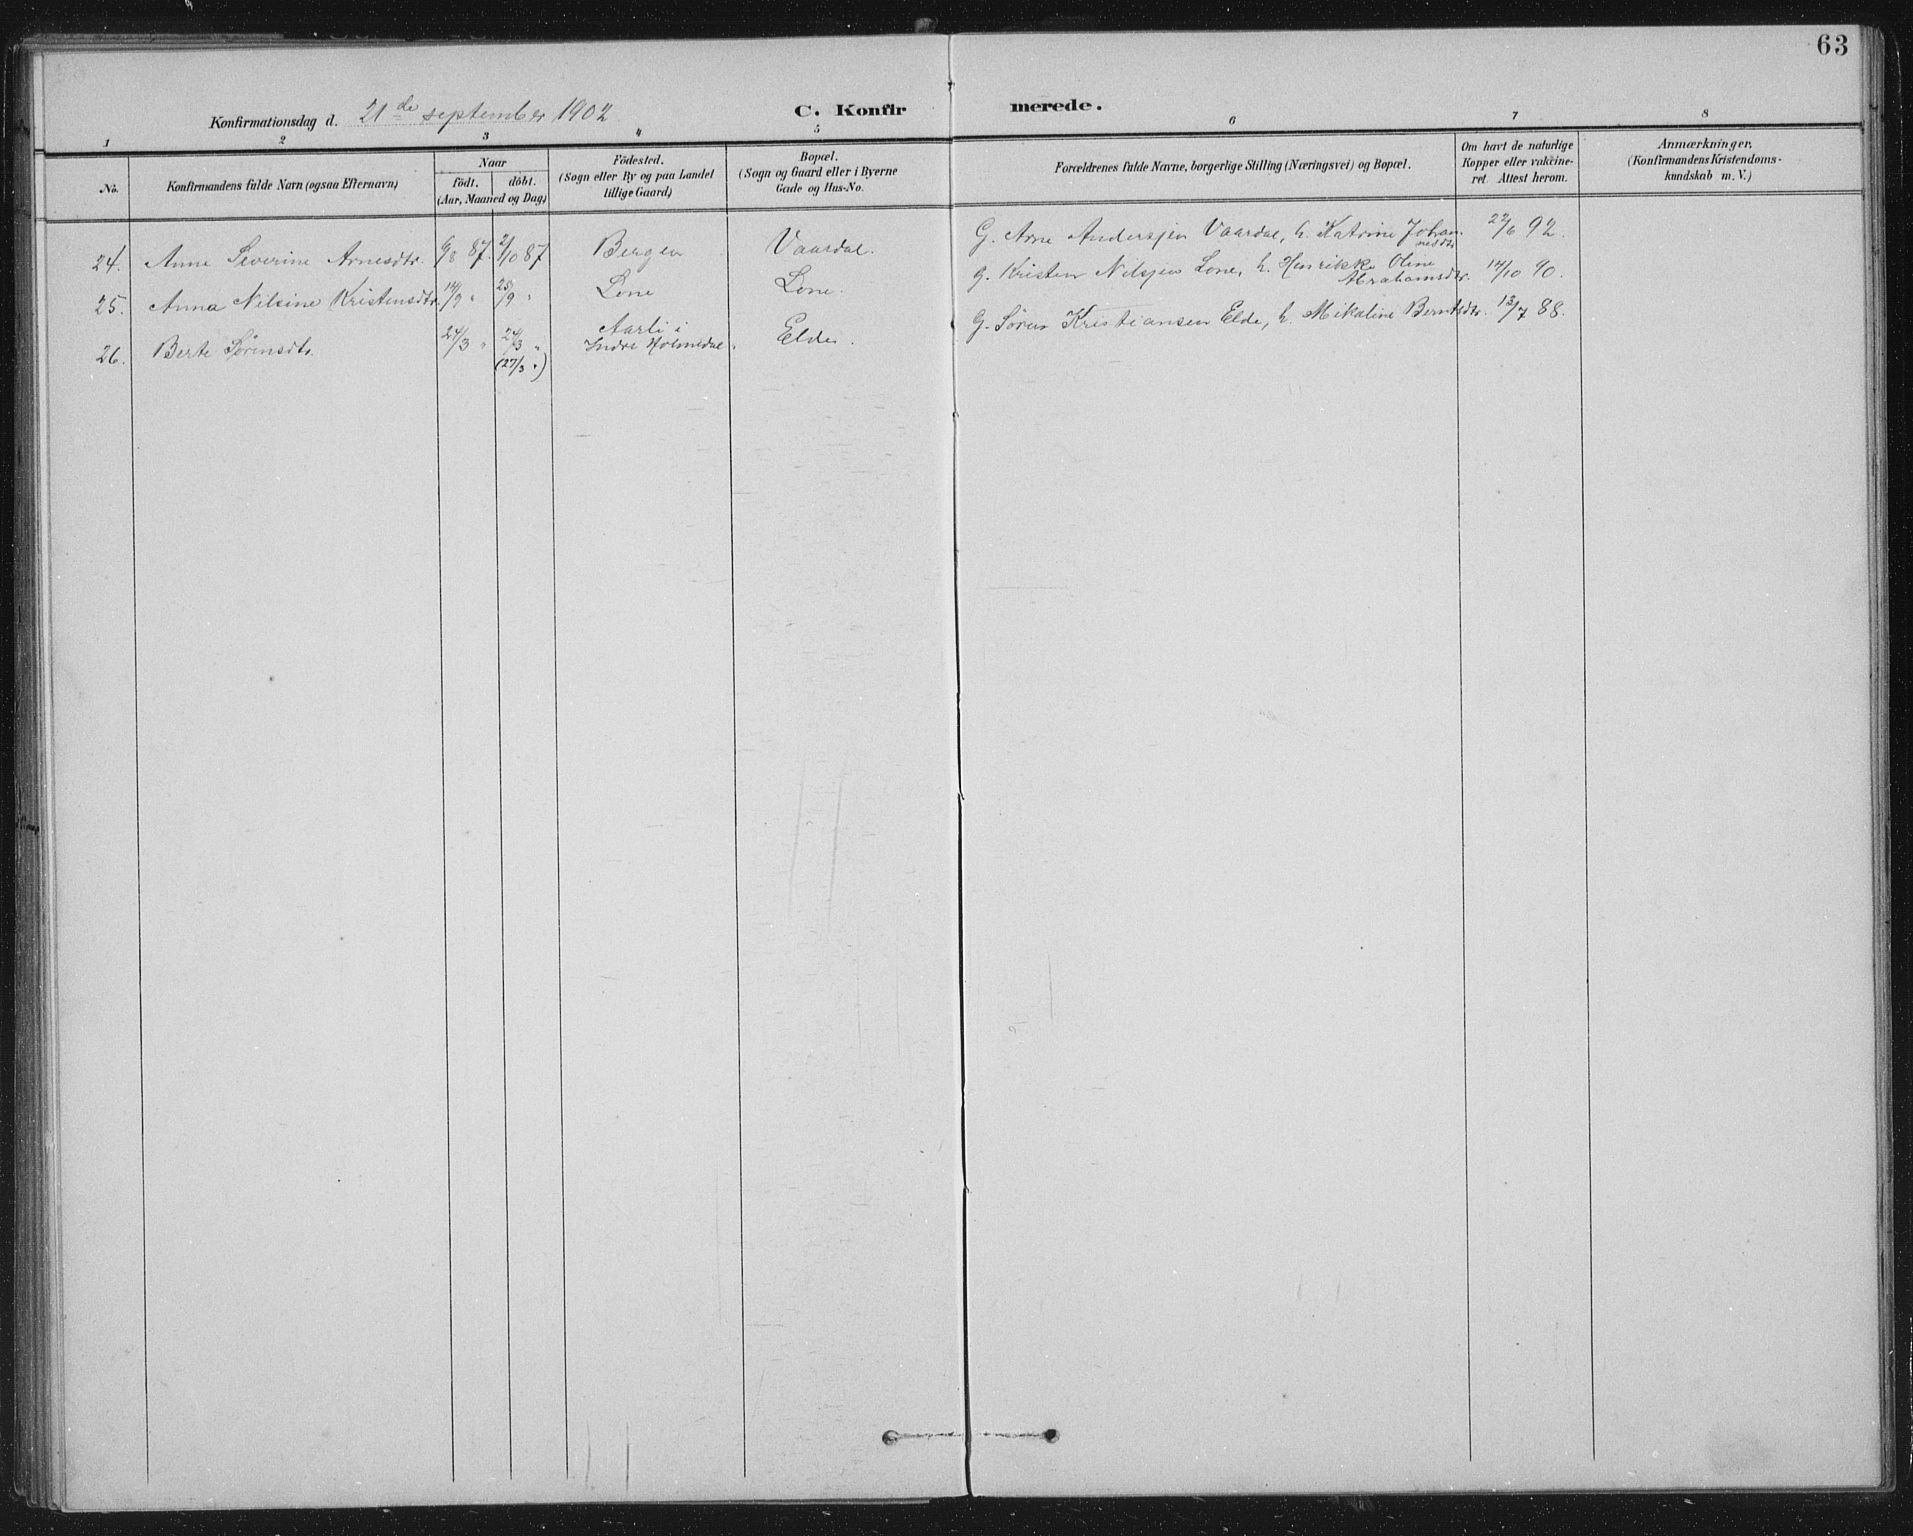 63
Konfirmationsdag d. 21de september 1902
C. Konfirmerede.
1 2 3 4 5 6 7 8
No.
Konfirmandens fulde Navn (ogsaa Efternavn)
Naar
födt. döbt.
(Aar, Maaned og Dag)
Födested.
(Sogn eller By og paa Landet
tillige Gaard)
Bopæl.
(Sogn og Gaard eller i Byerne
Gade og Hus-No.
Forældrenes fulde Navne, borgerlige Stilling (Næringsvei) og Bopæl.
Om havt de naturlige
Kopper eller vaccine-
ret. Attest herom.
Anmærkninger.
(Konfirmandens Kristendoms-
kundskab m. V.)
24. Anne Severine Arnesdtr. 6/8 87. 2/10 87 Bergen Vaardal. G. Arne Anderssen Vaardal, h. Katrine Johan- 22/6 92.
nesdtr
25. Anna Nilsine Kristensdtr 14/9 " 25/9 " Lone Lone. G. Kristen Nilssen Lone, h. Henrikke Oline 14/10 90.
Abrahamsdtr.
26. Berte Sørensdtr. 24/3 " 24/3 " Aarli i Elde. G. Søren Kristiansen Elde, h. Mikaline Berntsdtr. 13/7 88.
(27/3 ") Indre Holmedal.